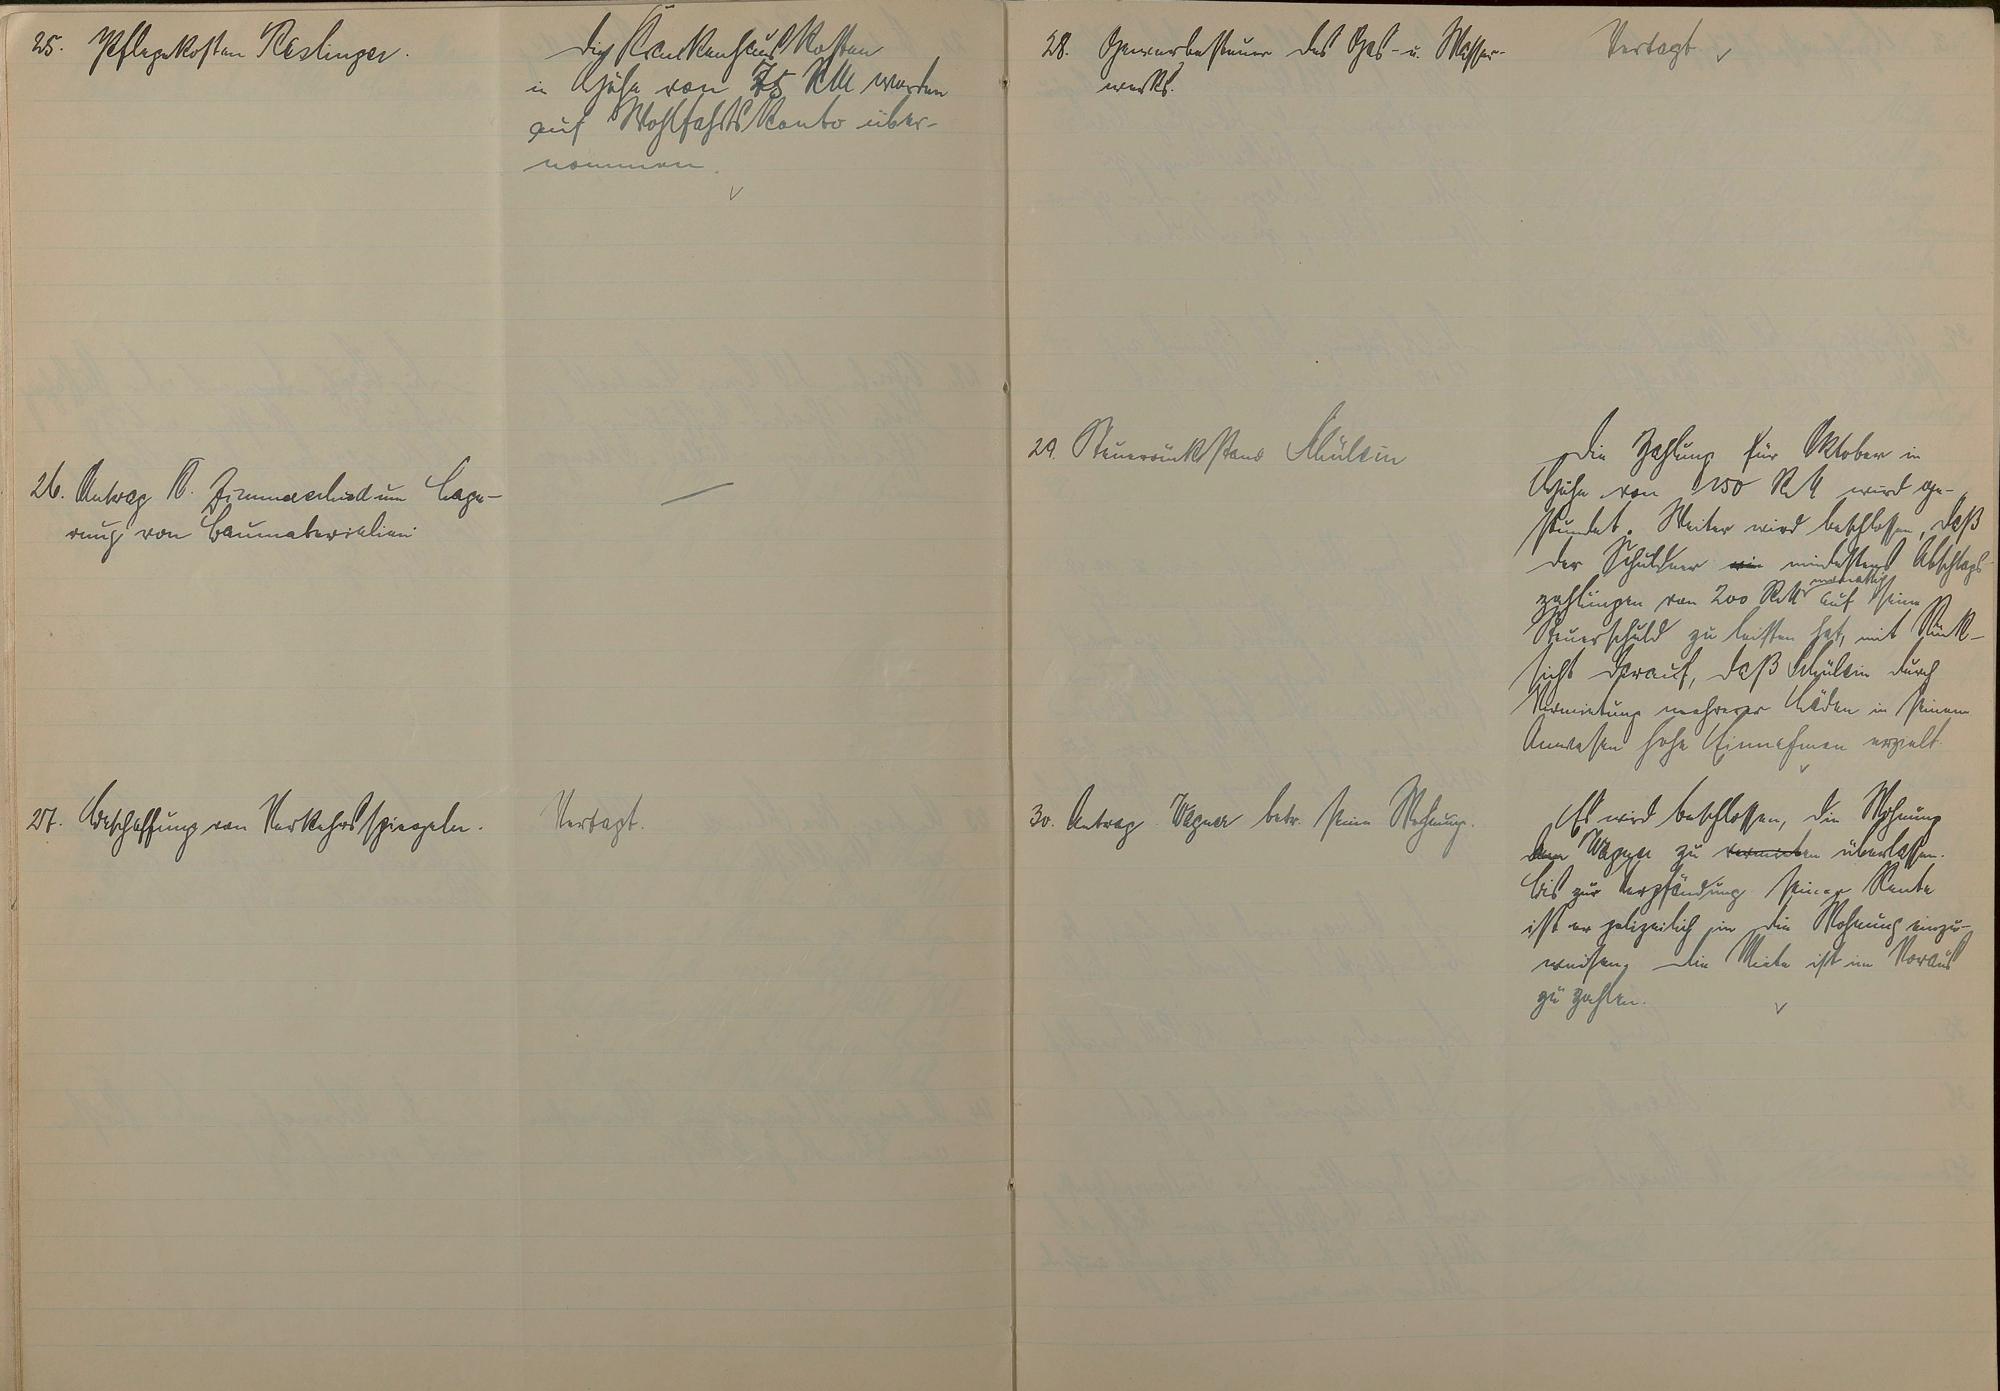 25. Pflegekosten Reslinger.
Die Krankenhauskosten
in Höhe von 75 RM werden
auf Wohlfahrtskonto über-
nommen.
26. Antrag A. Zimmerschied um Lage-
rung von Baumaterialien
—
27. Beschaffung von Verkehrsspiegeln.
Vertagt.
28. Gewerbesteuer des Gas- u. Wasser-
werks.
Vertagt
29. Steuerrückstand
Die Zahlung für Oktober in
Höhe von 150 RM wird ge-
stundet. Weiter wird beschlossen, daß
der Schuldner mindestens Abschlags-
zahlungen von 200 RM monatlich auf seine
Steuerschuld zu leisten hat, mit Rück-
sicht darauf, daß durch
Vermietung mehrerer Läden in seinem
Anwesen hohe Einnahmen erzielt.
30. Antrag Wagner betr. seine Wohnung.
Es wird beschlossen, die Wohnung
dem Wagner zu vermieten überlassen.
Bis zur Verpfändung seiner Rente
ist er polizeilich in die Wohnung einzu-
weisen. Die Miete ist im Voraus
zu zahlen.